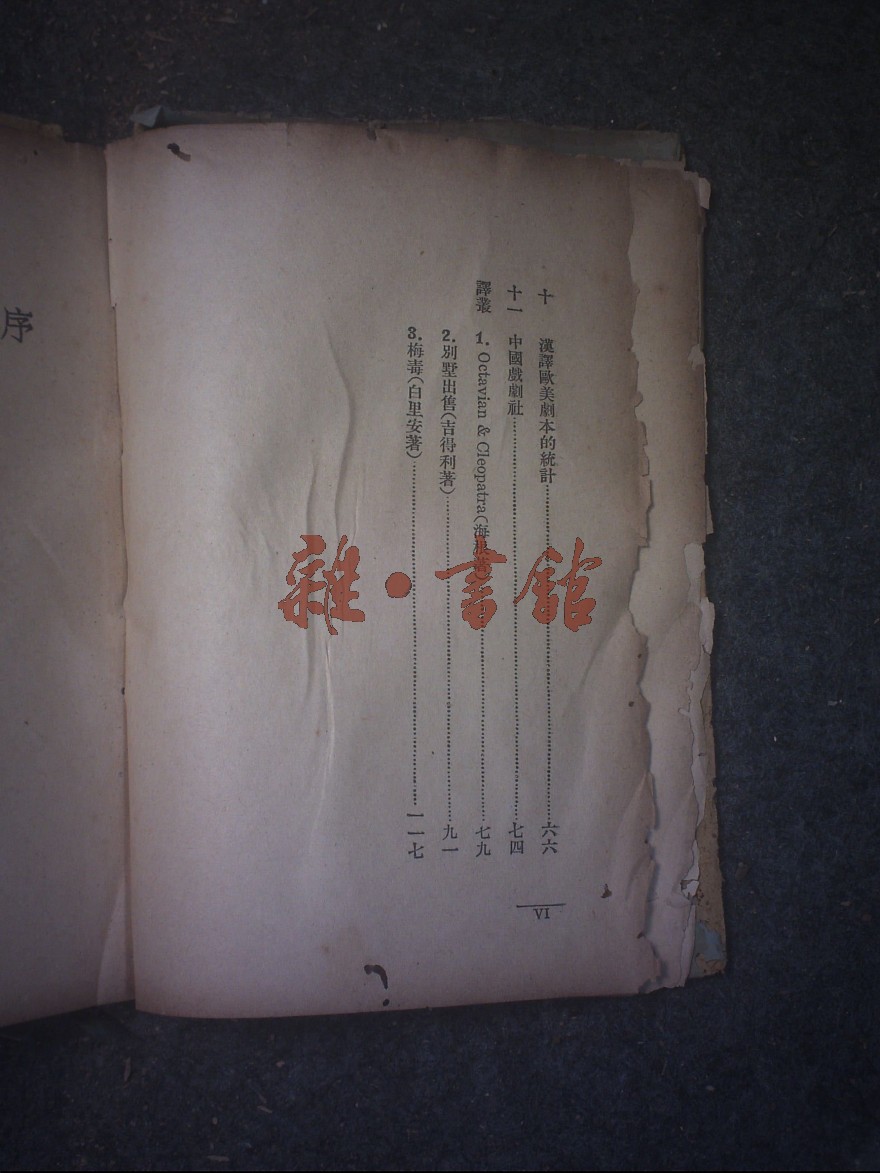 十　漢譯歐美劇本的統計…………六六
十一　中國戲劇社…………七四
譯叢　1. Octavian & Cleopatra（海根著）…………七九
2. 別墅出售（吉得利著）…………九一
3. 梅毒（白里安著）…………一一七
VI
序
雜·書館